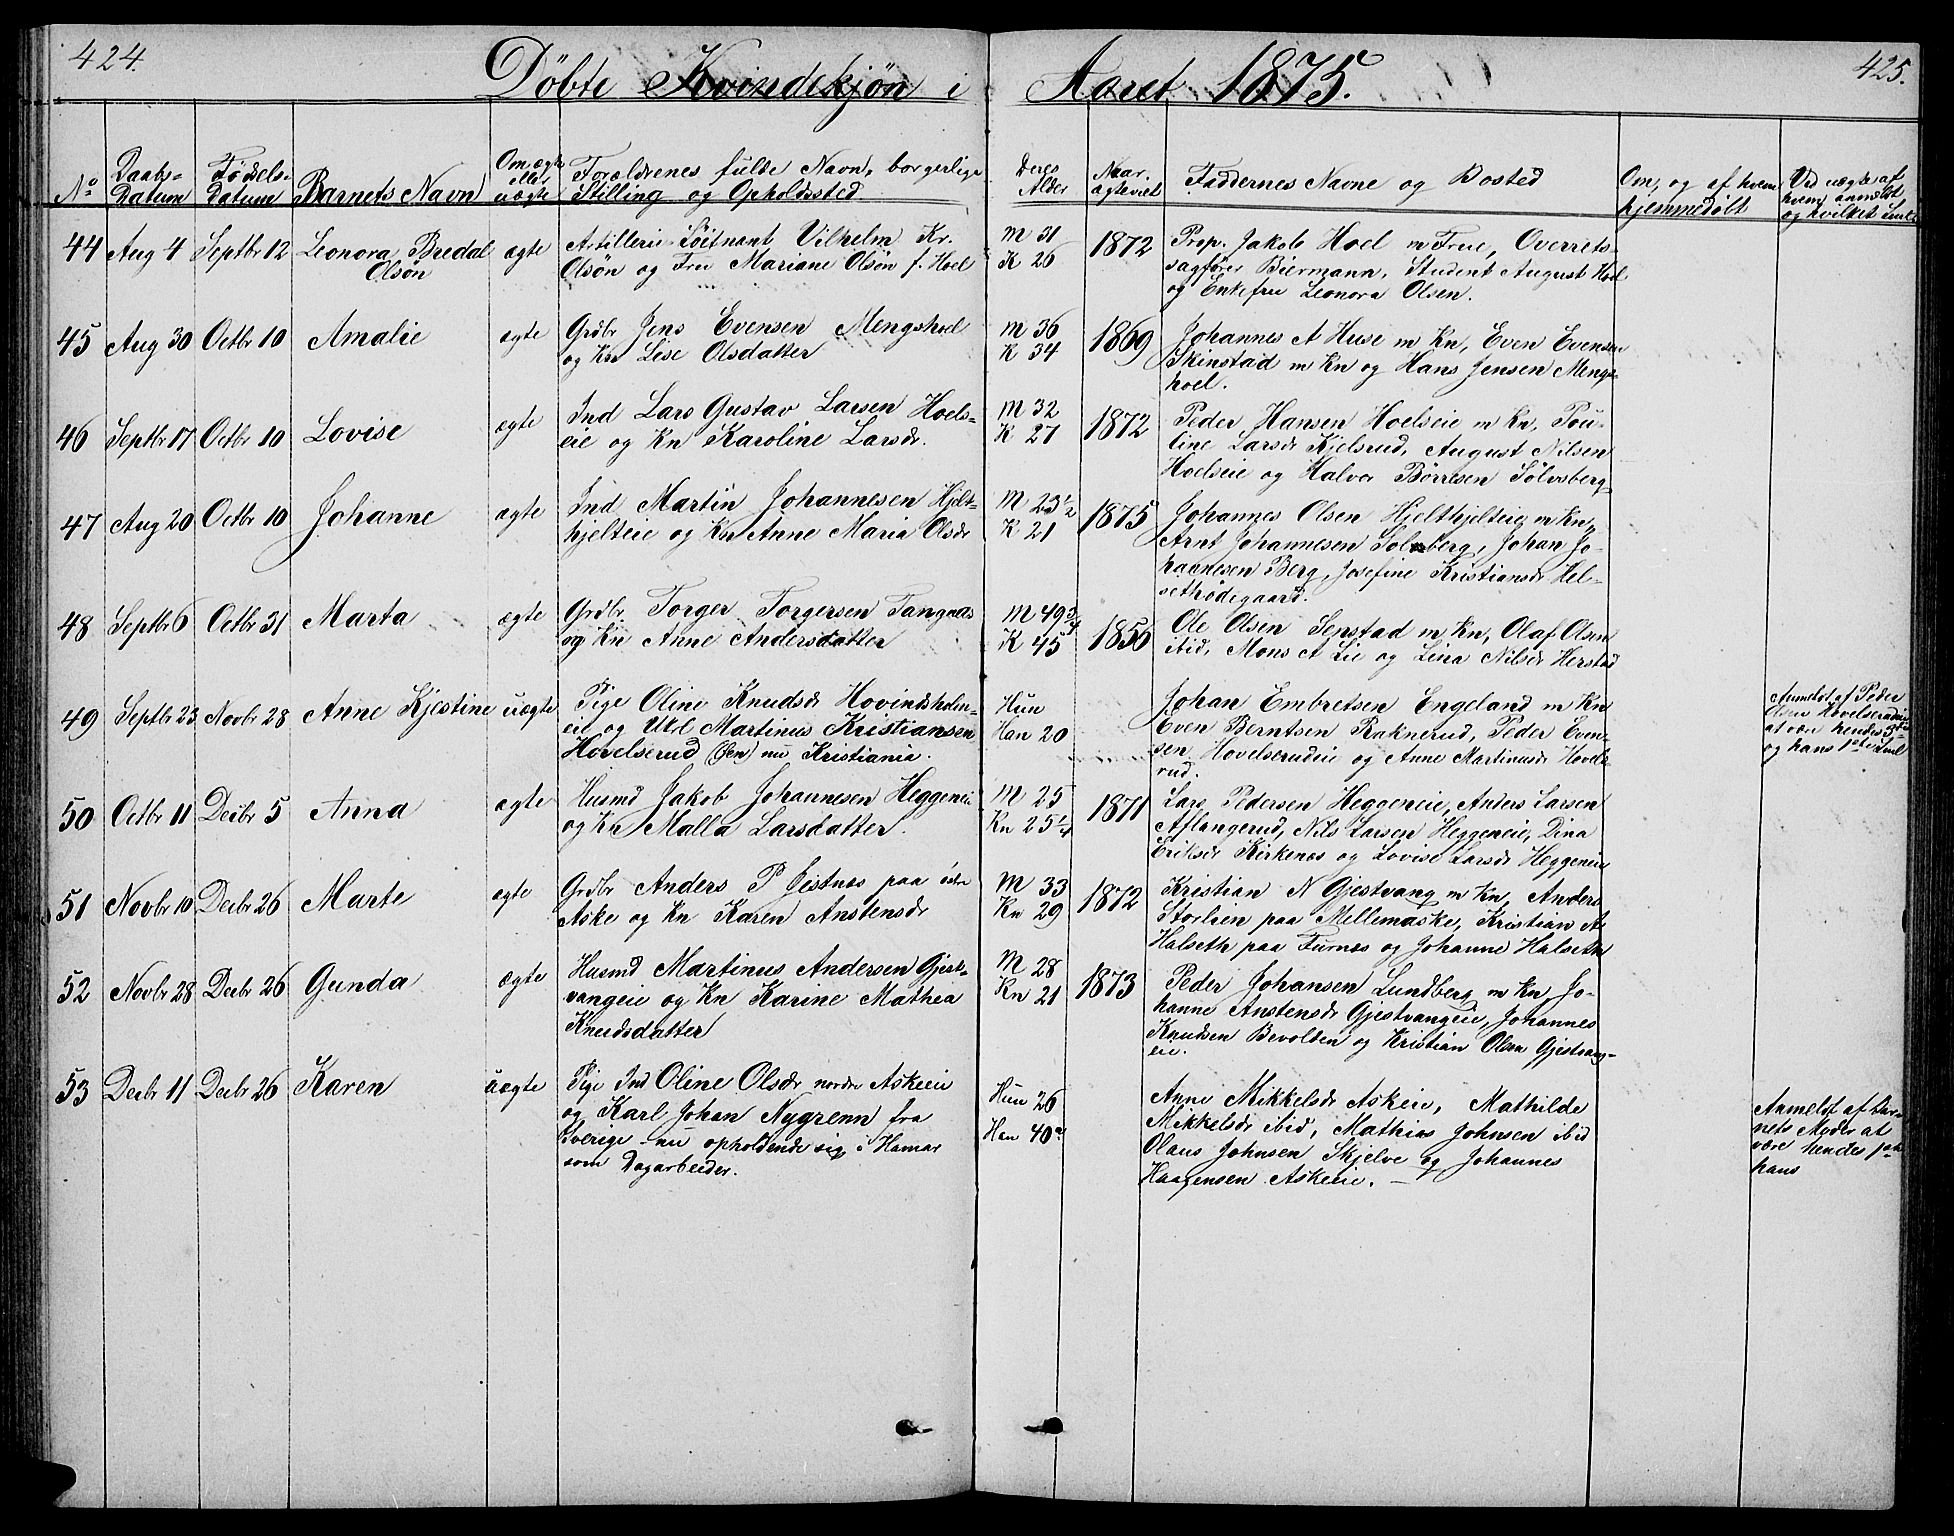 424.
Döbte Kvindekjön i Aaret 1875.
425.
No
Daabs-
Datum
Födsels-
Datum
Barnets Navn
Om ægte
eller
uægte
Forældrenes fulde Navn, borgerlige
Stilling og Opholdssted.
Deres
Alder
Naar
ægteviet
Faddernes Navne og Bosted
Om, og af hvem
hjemmedöbt
Ved uægte af
hvem anmeldt
og hvilket Leie
44 Aug 4 Septbr 12 Leonora Bredal
Olsön
ægte
Artillerie-Löitnant Vilhelm Kr.
Olsön og Fru Mariane Olsön f. Hoel
M 31
K 26
1872
Prop. Jakob Hoel m Frue, Overrets-
sagförer Biermann, Student August Hoel
og Enkefru Leonora Olsen.
45 Aug 30 Octbr 10 Amalie ægte
Grdbr Jens Evensen Mengshoel
og Kn Lise Olsdatter
M 36
K 34
1869
Johannes A Huse m Kn, Even Evensen
Skinstad m Kn og Hans Jensen Mengs-
hoel.
46 Septbr 17 Octbr 10 Lovise ægte
Ind Lars Gustav Larsen Hoels-
eie og Kn Karoline Larsdr.
M 32
K 27
1872
Peder Hansen Hoelseie m Kn, Pou-
line Larsdr Kjelsrud, August Nilsen
Hoelseie og Halvor Börresen Sölvsberg
47 Aug 20 Octbr 10 Johanne ægte
Ind Martin Johannesen Hjelt-
hjelteie og Kn Anne Maria Olsdr
M 23 1/2
K 21
1875
Johannes Olsen Hjelthjelteie m Kn,
Arnt Johannesen Solberg, Johan Jo-
hannesen Berg, Josefine Kristiansdr Hel-
sethödegaard.
48 Septbr 6 Octbr 31 Marta ægte
Grdbr. Torger Torgersen Tangnæs
og Kn Anne Andersdatter
M 49 3/4
K 45
1856
Ole Olsen Sepstad m Kn, Olaf Olsen
ibid, Mons A Lie og Lina Nilsdr Herstad
49 Septbr 23 Novbr 28 Anne Kjestine uægte
Pige Oline Knudsdr Hovindsholm-
eie og Ukl Martinus Kristiansen
Hovelserud (Sen) nu Kristiania.
Hun
Han 20
Johan Embretsen Engeland m Kn
Even Berntsen Raknerud, Peder Even-
sen Hovelserudeie og Anne Martinusdr Hovels-
rud.
Anmeldt af Peder
Olsen Hovelserudeie
at være hendes 5te
og hans 1ste Leie
50 Octbr 11 Decbr 5 Anna ægte
Husmd Jakob Johannesen Heggeneie
og Kn Malla Larsdatter.
M 25
Kn 25 1/4
1871
Lars Pedersen Heggeneie, Anders Larsen
Aflangerud, Nils Larsen Heggeneie, Dina
Eriksdr Kirkenæs og Lovise Larsdr Heggeneie
51 Novbr 10 Decbr 26 Marte ægte
Grdbr Anders P Jistnæs paa östre
Aske og Kn Karen Anstensdr
M 33
Kn 29
1872
Kristian N Gjestvang m Kn, Anders
Storlsen paa Mellemaske, Kristian A
Halseth paa Furnes og Johanne Halseth
52 Novbr 28 Decbr 26 Gunda ægte
Husmd Martinus Andersen Gjest-
vangeie og Kn Karine Mathea
Knudsdatter
M 28
Kn 21
1873
Peder Johansen Lundberg m Kn, Jo-
hanne Anstensdr Gjestvangeie, Johannes
Knudsen Bevolden og Kristian Olsen Gjestvang-
eie.
53 Decbr 11 Decbr 26 Karen uægte
Pige Ind Oline Olsdr nordre Askeeie
og Karl Johan Nygrenn fra
Sverige nu opholdende sig i Hamar
som Dagarbeider.
Hun 26
Han 40
Anne Mikkelsdr Askeie, Mathilde
Mikkelsdr ibid, Mathias Johnsen ibid
Olaus Johnsen Skjelve og Johannes
Haagensen Askeie.
Anmeldt af Bar-
nets Moder at
være hendes 1ste
hans